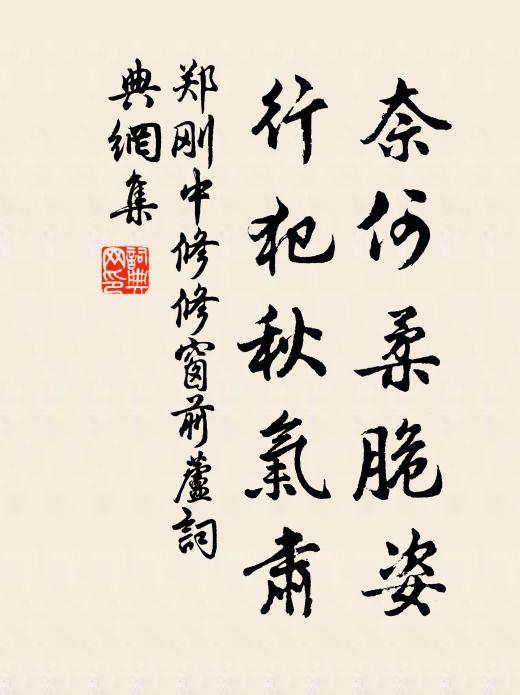 奈何柔脆姿
行犯秋氣肅
郑刚中修修窗前蘆詞
典網集
詞典網印